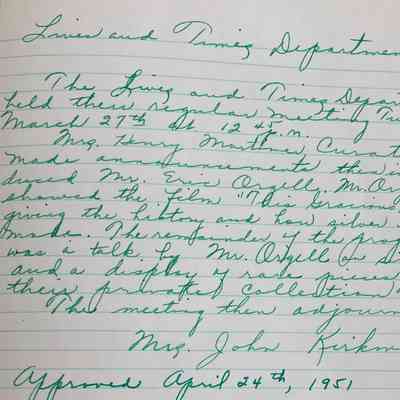 Lives and Times Departmen
The Lives and Times Depar
held their regular meeting Tu
March 27th at 12 45 p.m.
Mrs. Henry Mortimer, Curat
made announcements then in
duced Mr. Eric Orgell. Mr. Or
showed the film "This Gracious
giving the history and how silver
made. The remainder of the prog
was a talk by Mr. Orgell on Si
and a display of rare pieces
their private collection
The meeting then adjourn
Mrs. John Kirkm
Approved April 24th, 1951